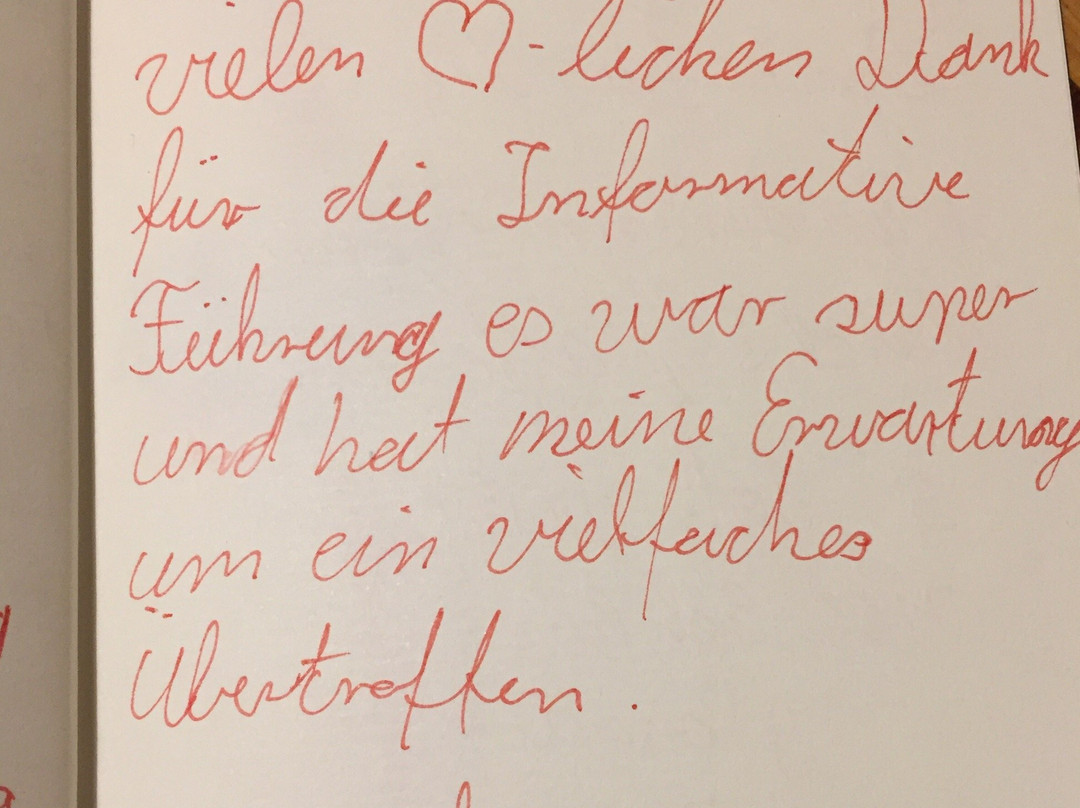 vielen ♡-lichen Dank
für die Informative
Führung es war super
und hat meine Erwartung
um ein vielfaches
Übertroffen.